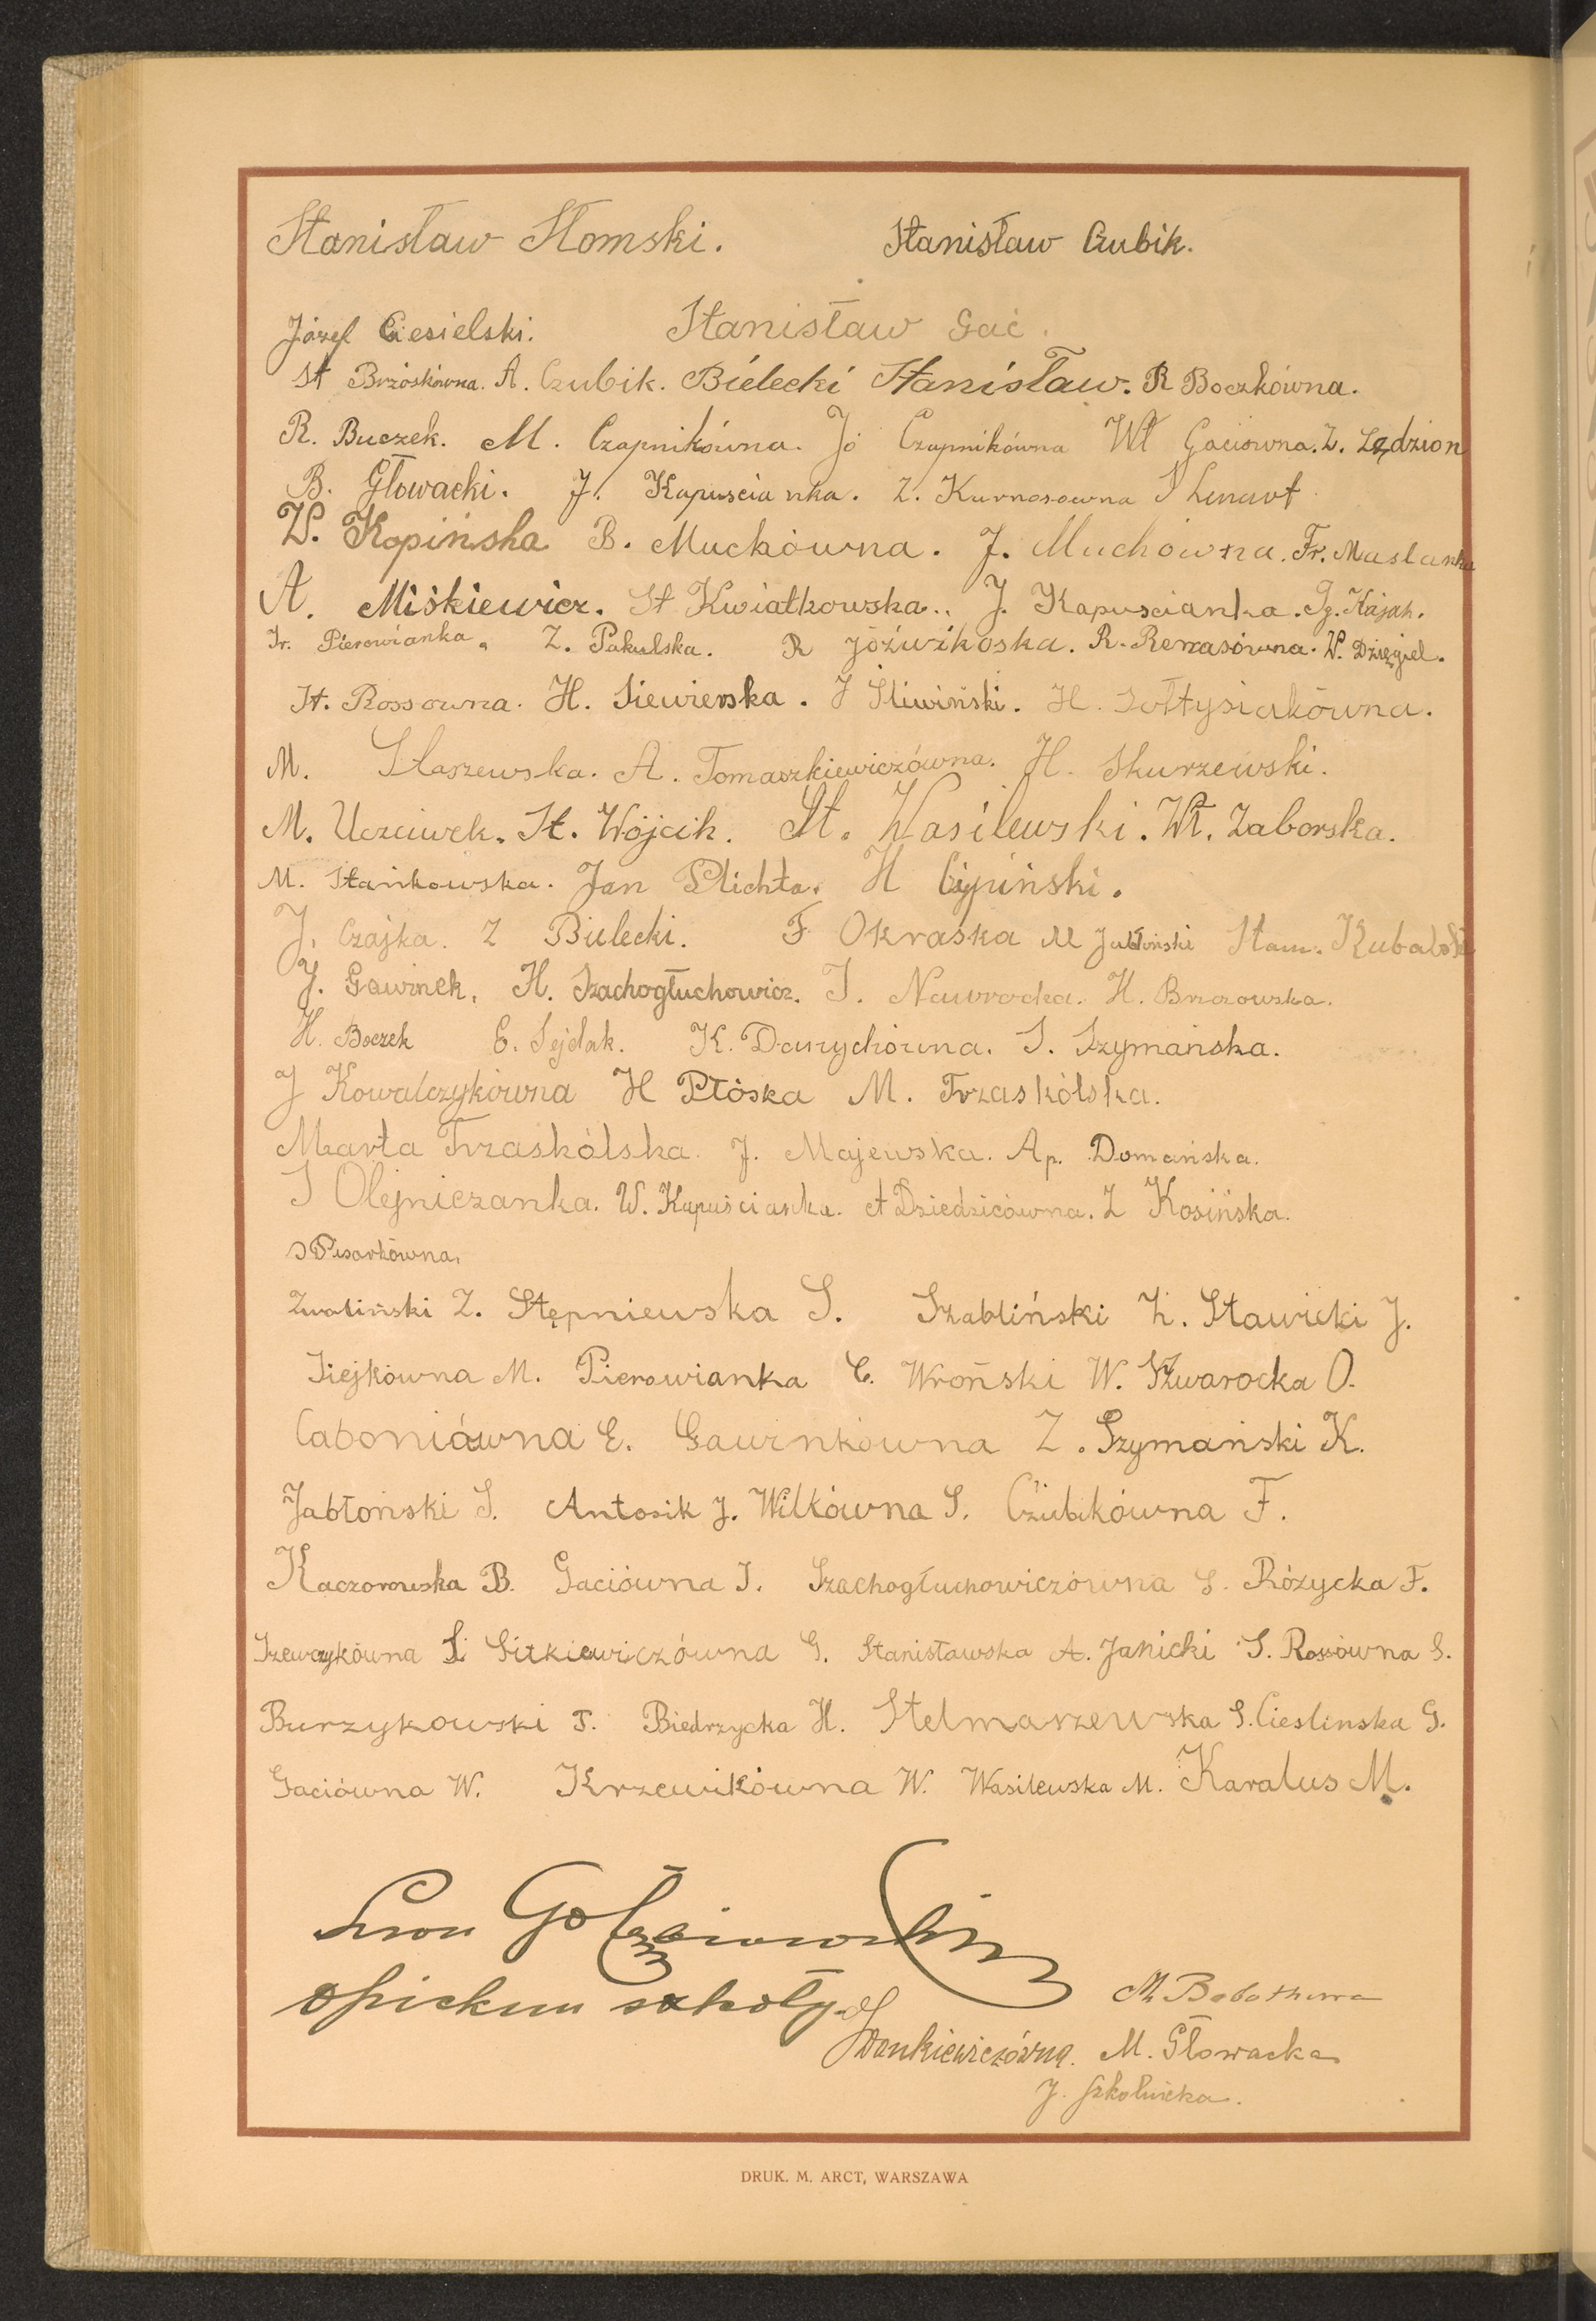 Stanisław Słomski. Stanisław Czubik.
Józef Ciesielski. Stanisław Gać.
St Brzóskówna. A. Czubik. Bielecki Stanisław. R Boczkówna.
R. Buczek. M. Czapnikówna. Jó Czapnikówna Wł Gaciówna. Z. Zędzion
B. Głowacki. J. Kapuscianka. Z. Kurnosowna S Lenart
W. Kopińska B. Muchówna. J. Muchówna. Fr. Maslanka
A. Miśkiewicz. St Kwiatkowska.. J. Kapuscianka. Ig. Książk.
Ir. Pierowianka. Z. Pakulska. R Jóźwikoska. R. Remasówna. W. Dzięgiel.
St. Rossowna. H. Siewierska. J Śliwiński. H. Sołtysiakówna.
M. Staszewska. A. Tomaszkiewiczówna. H. Skurzewski.
M. Uczciwek. St. Wójcik. St. Wasilewski. Wł. Zaborska.
M. Stańkowska. Jan Plichta. H Cypiński.
J. Czajka. Z Bielecki. F Okraska M Jabłoński Stan. Kubalski
J. Gawinek. H. Szachogłuchowicz. I. Nawrocka. H. Brzozowska.
H. Boczek E. Sejdak. K. Dawychówna. S. Szymańska.
J Kowalczykówna H Płóska M. Trzaskólska.
Marta Trzaskólska. J. Majewska. Ap. Domańska.
S Olejniczanka. W. Kapuścianka. A Dziedzicówna. Z Kosińska.
S Pisarkówna.
Zwoliński Z. Stępniewska S. Szabliński Z. Stawicki J.
Siejkówna M. Pierowianka C. Wroński W. Szwarocka O.
Caboniówna E. Gawinkówna Z. Szymański K.
Jabłoński S. Antosik J. Wilkówna S. Czubikówna F.
Kaczorowska B. Gaciówna I. Szachogłuchowiczówna S. Różycka F.
Szewczykówna S. Sitkiewiczówna G. Stanisławska A. Janicki S. Rossówna S.
Burzykowski T. Biedrzycka H. Stelmaszewska S. Cieslinska G.
Gaciówna W. Krzewikówna W. Wasilewska M. Karalus M.
Leon
opiekun szkoły. M
Wankiewiczówna. M. Głowacka
J. Szkolnicka.
DRUK. M. ARCT, WARSZAWA